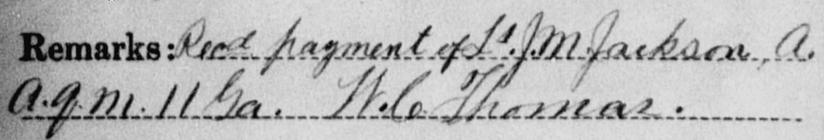 Remarks: Recd payment of Lt. J. M. Jackson, A.
A. Q. M. 11 Ga. W. C Thomas.